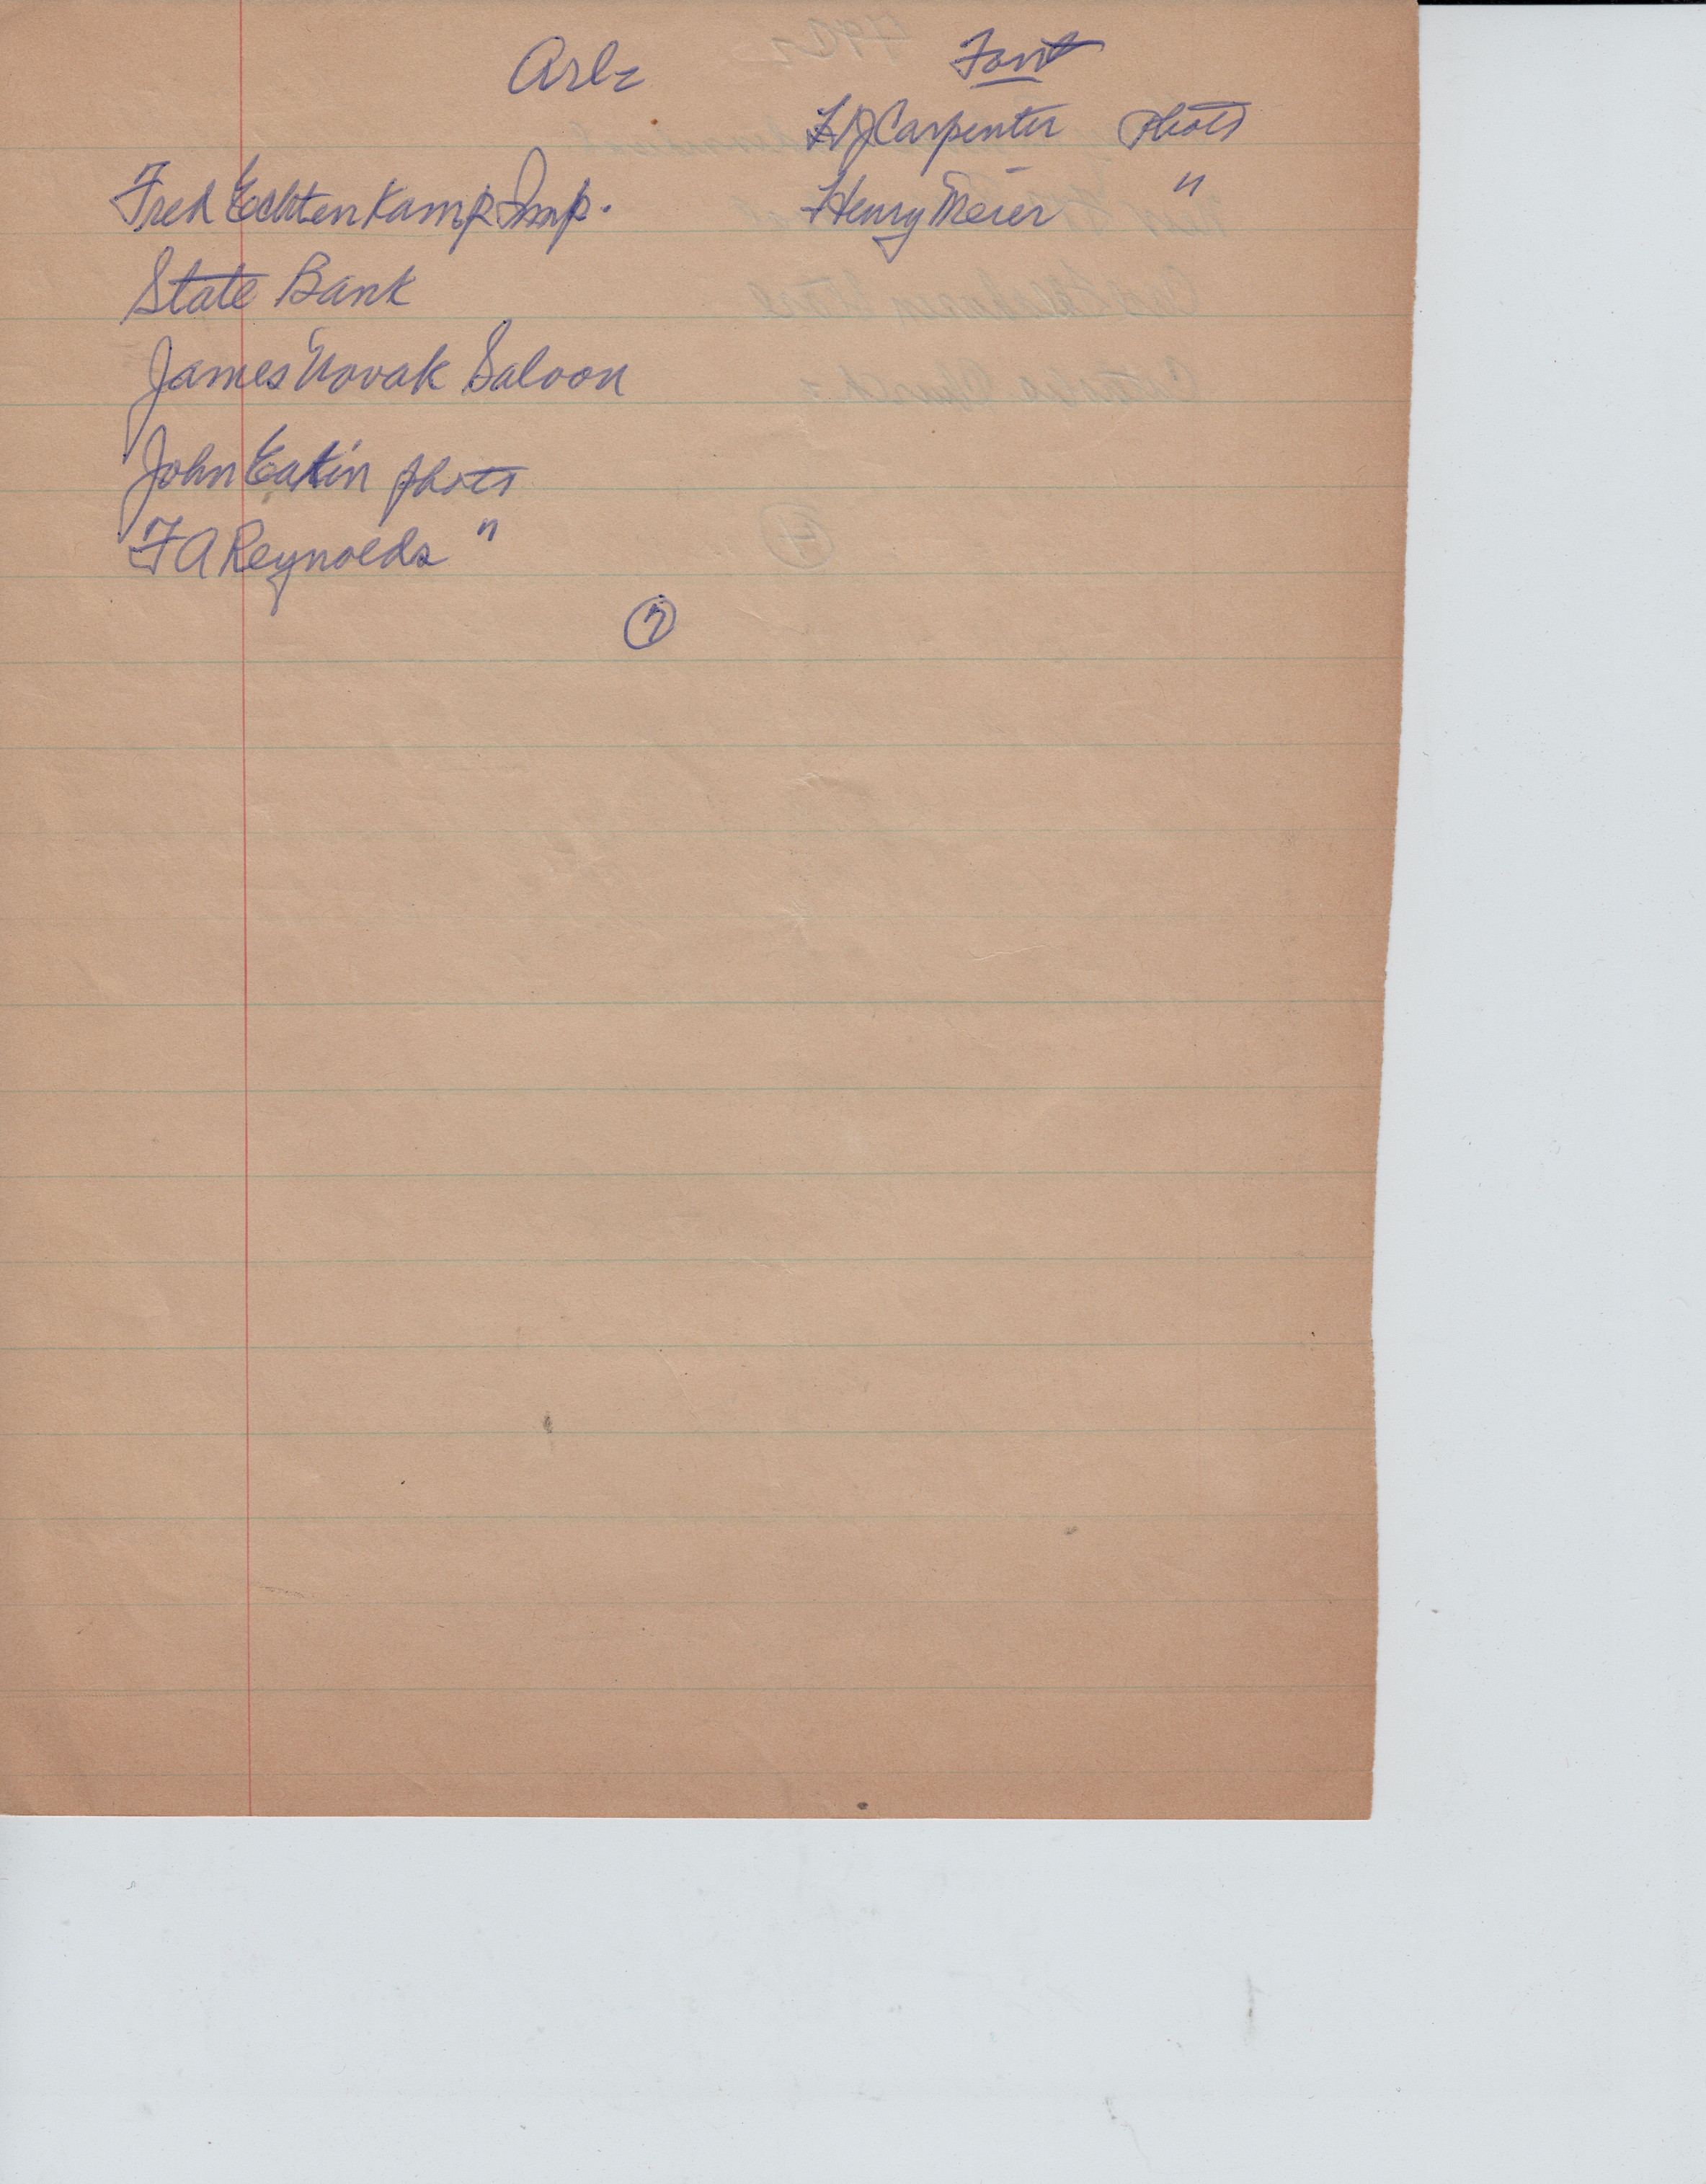 Arl=
Font
H J Carpenter photo
Fred Echtenkamp Imp.
Henry Meier "
State Bank
James Novak Saloon
John Eakin photo
F A Reynolds "
7